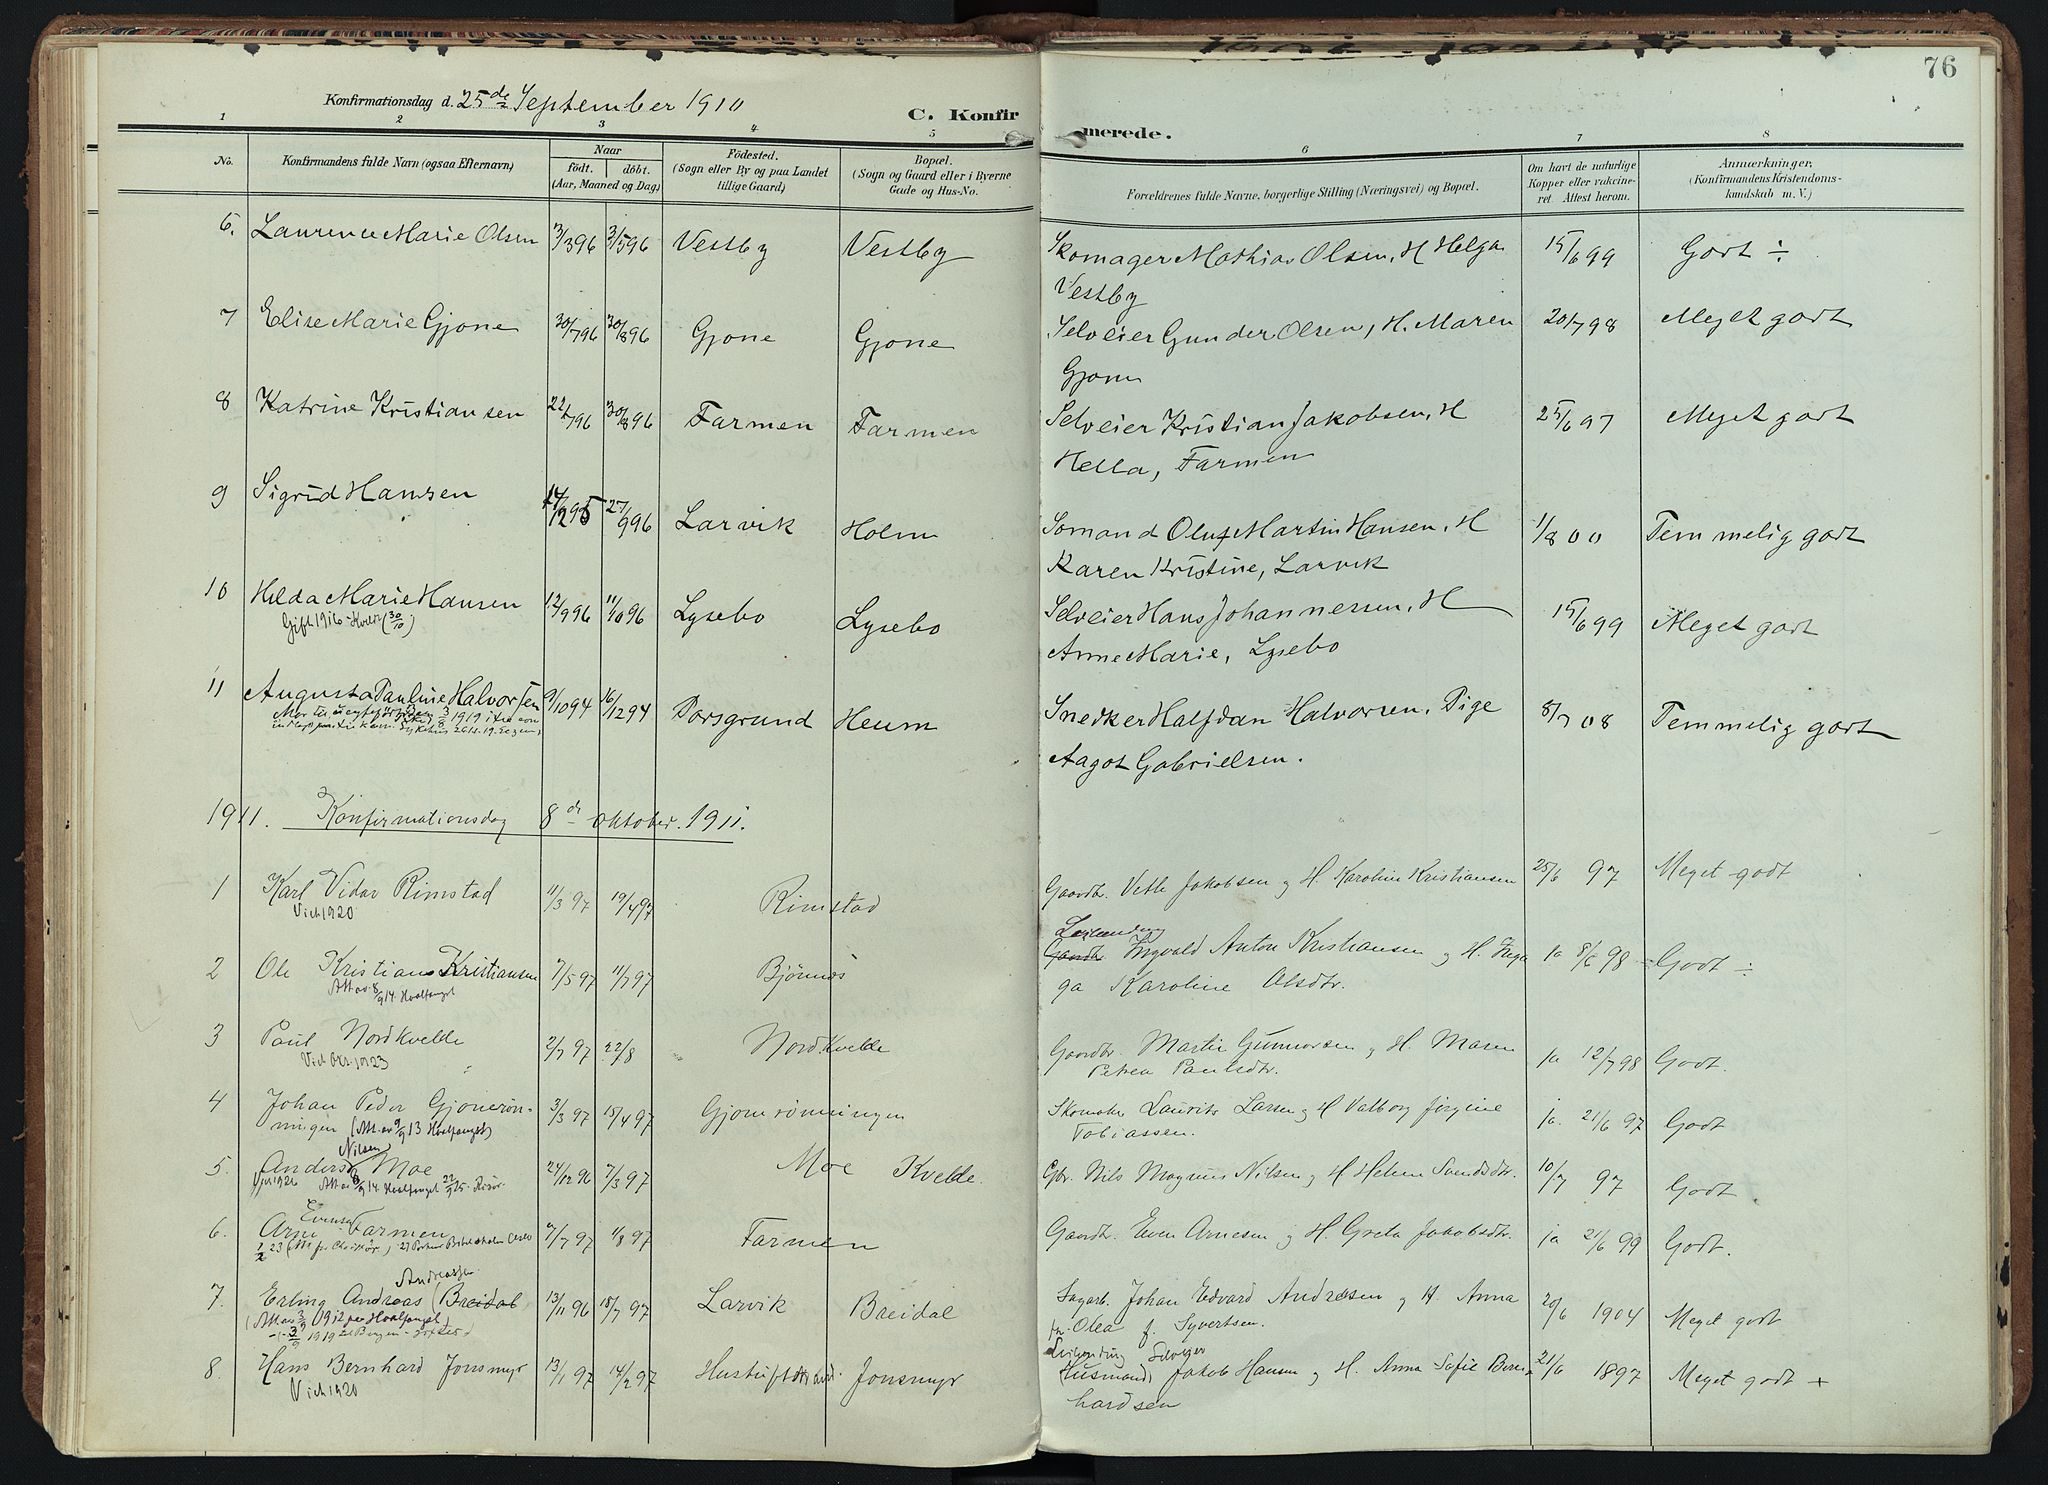 76
Konfirmationsdag d. 25de September 1910
C. Konfirmerede.
1 2 3 4 5 6 7 8
No. Konfirmandens fulde Navn (ogsaa Efternavn) Naar födt. döbt. (Aar, Maaned og Dag) Födested. (Sogn eller By og paa Landet tillige Gaard) Bopæl. (Sogn og Gaard eller i Byerne Gade og Hus-No. Forældrenes fulde Navne, borgerlige Stilling (Næringsvei) og Bopæl. Om havt de naturlige Kopper eller vakcineret. Attest herom. Anmærkninger, (Konfirmandens Kristendomskundskab m. V.)
6. Laurence Marie Olsen 3/3 96 3/5 96 Vestby Vestby Skomager Mathias Olsen, H Helga 15/6 99 Godt ÷
Vestby
7 Elise Marie Gjone 30/7 96 30/8 96 Gjone Gjone Selveier Gunder Olsen, H. Maren 20/7 98 Meget godt
Gjone
8 Katrine Kristiansen 22/7 96 30/8 96 Farmen Farmen Selveier Kristian Jakobsen, H 25/6 97 Meget godt
Hella, Farmen
9 Sigrid Hansen 14/12 95 27/9 96 Larvik Holm Sømand Oluf Martin Hansen, H 1/8 00 Temmelig godt
Karen Kristine, Larvik
10 Hilda Marie Hansen 12/9 96 11/10 96 Lysebo Lysebo Selveier Hans Johannessen, H 15/6 99 Meget godt
Gift 1916 Kvelde (30/10)
Anne Marie, Lysebo
11 Augusta Pauline Halvorsen 9/10 94 16/12 94 Porsgrund Heum Snedker Halfdan Halvorsen, Pige 8/7 08 Temmelig godt
Aagot Gabrielsen.
1911. Konfirmationsdag 8de oktober. 1911.
1 Karl Vidar Rimstad 11/3 97 19/4 97 Rimstad Gaardbr. Vetle Jakobsen og H. Karoline Kristiansen 25/6 97 Meget godt
Vich 1920
2 Ole Kristian Kristiansen 7/5 97 11/7 97 Bjönnes Gaardbr Ingvald Anton Kristiansen og H. Inga ja 8/6 98 Godt ÷
Att av 8/9 14. Hvalfangst
ga Karoline Olsdtr.
3 Paul Nordkvelde 2/7 97 22/8 Nordkvelde Gaardbr. Martin Gunnarsen og H. Maren ja 12/7 98 Godt.
Petrea Paulsdtr.
4 Johan Peder Gjonerönningen 3/3 97 15/4 97 Gjonerønningen Skomaker Laurits Larsen og H Valborg Jörgine ja. 21/6 97 Godt
(Att. av 9/9 13 Hvalfangst)
Tobiassen.
Nilsen
5. Anders Moe 24/12 96 7/3 97 Moe Kvelde. Gbr. Nils Magnus Nilsen og H Helene Svendsdtr. 10/7 97 Godt
Evensen
6. Arne Farmen 7/7 97 1/8 97 Farmen Gaardbr. Even Arnesen og H. Greta Jakobsdtr. ja 21/6 99 Godt.
Andreassen
7. Erling Andreas (Breidal) 13/11 96 18/7 97 Larvik Breidal Sagarb. Johan Edvard Andresen og H Anna 20/6 1904 Meget godt
(Att av 3/9 1912 per Hvalfangst)
Olea f. Syvertsen.
8. Hans Bernhard Jonsmyr 13/1 97 14/2 97 Jonsmyr Husmand Jakob Hansen og H. Anna Sofie Bern- 21/6 1897 Meget godt +
Vich 1920
hardsen